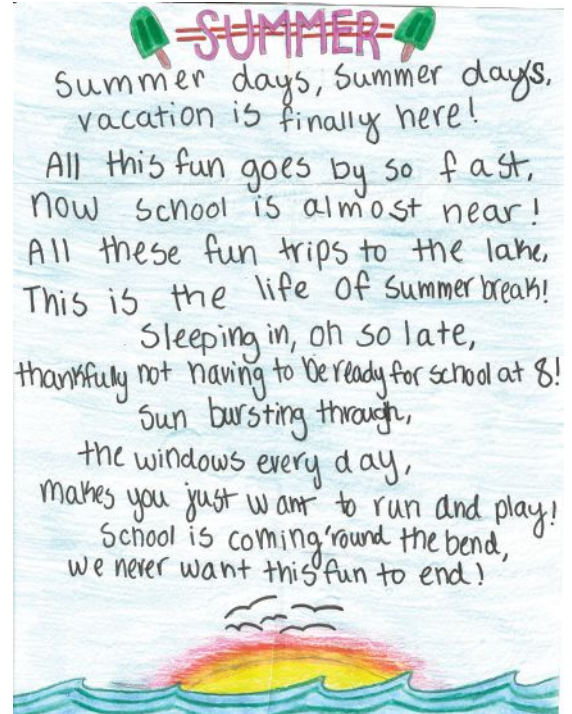 SUMMER
Summer days, Summer days,
vacation is finally here!
All this fun goes by so fast,
now school is almost near!
All these fun trips to the lake,
This is the life of Summer break!
Sleeping in, oh so late,
thankfully not having to be ready for school at 8!
Sun bursting through,
the windows every day,
makes you just want to run and play!
School is coming 'round the bend,
we never want this fun to end!